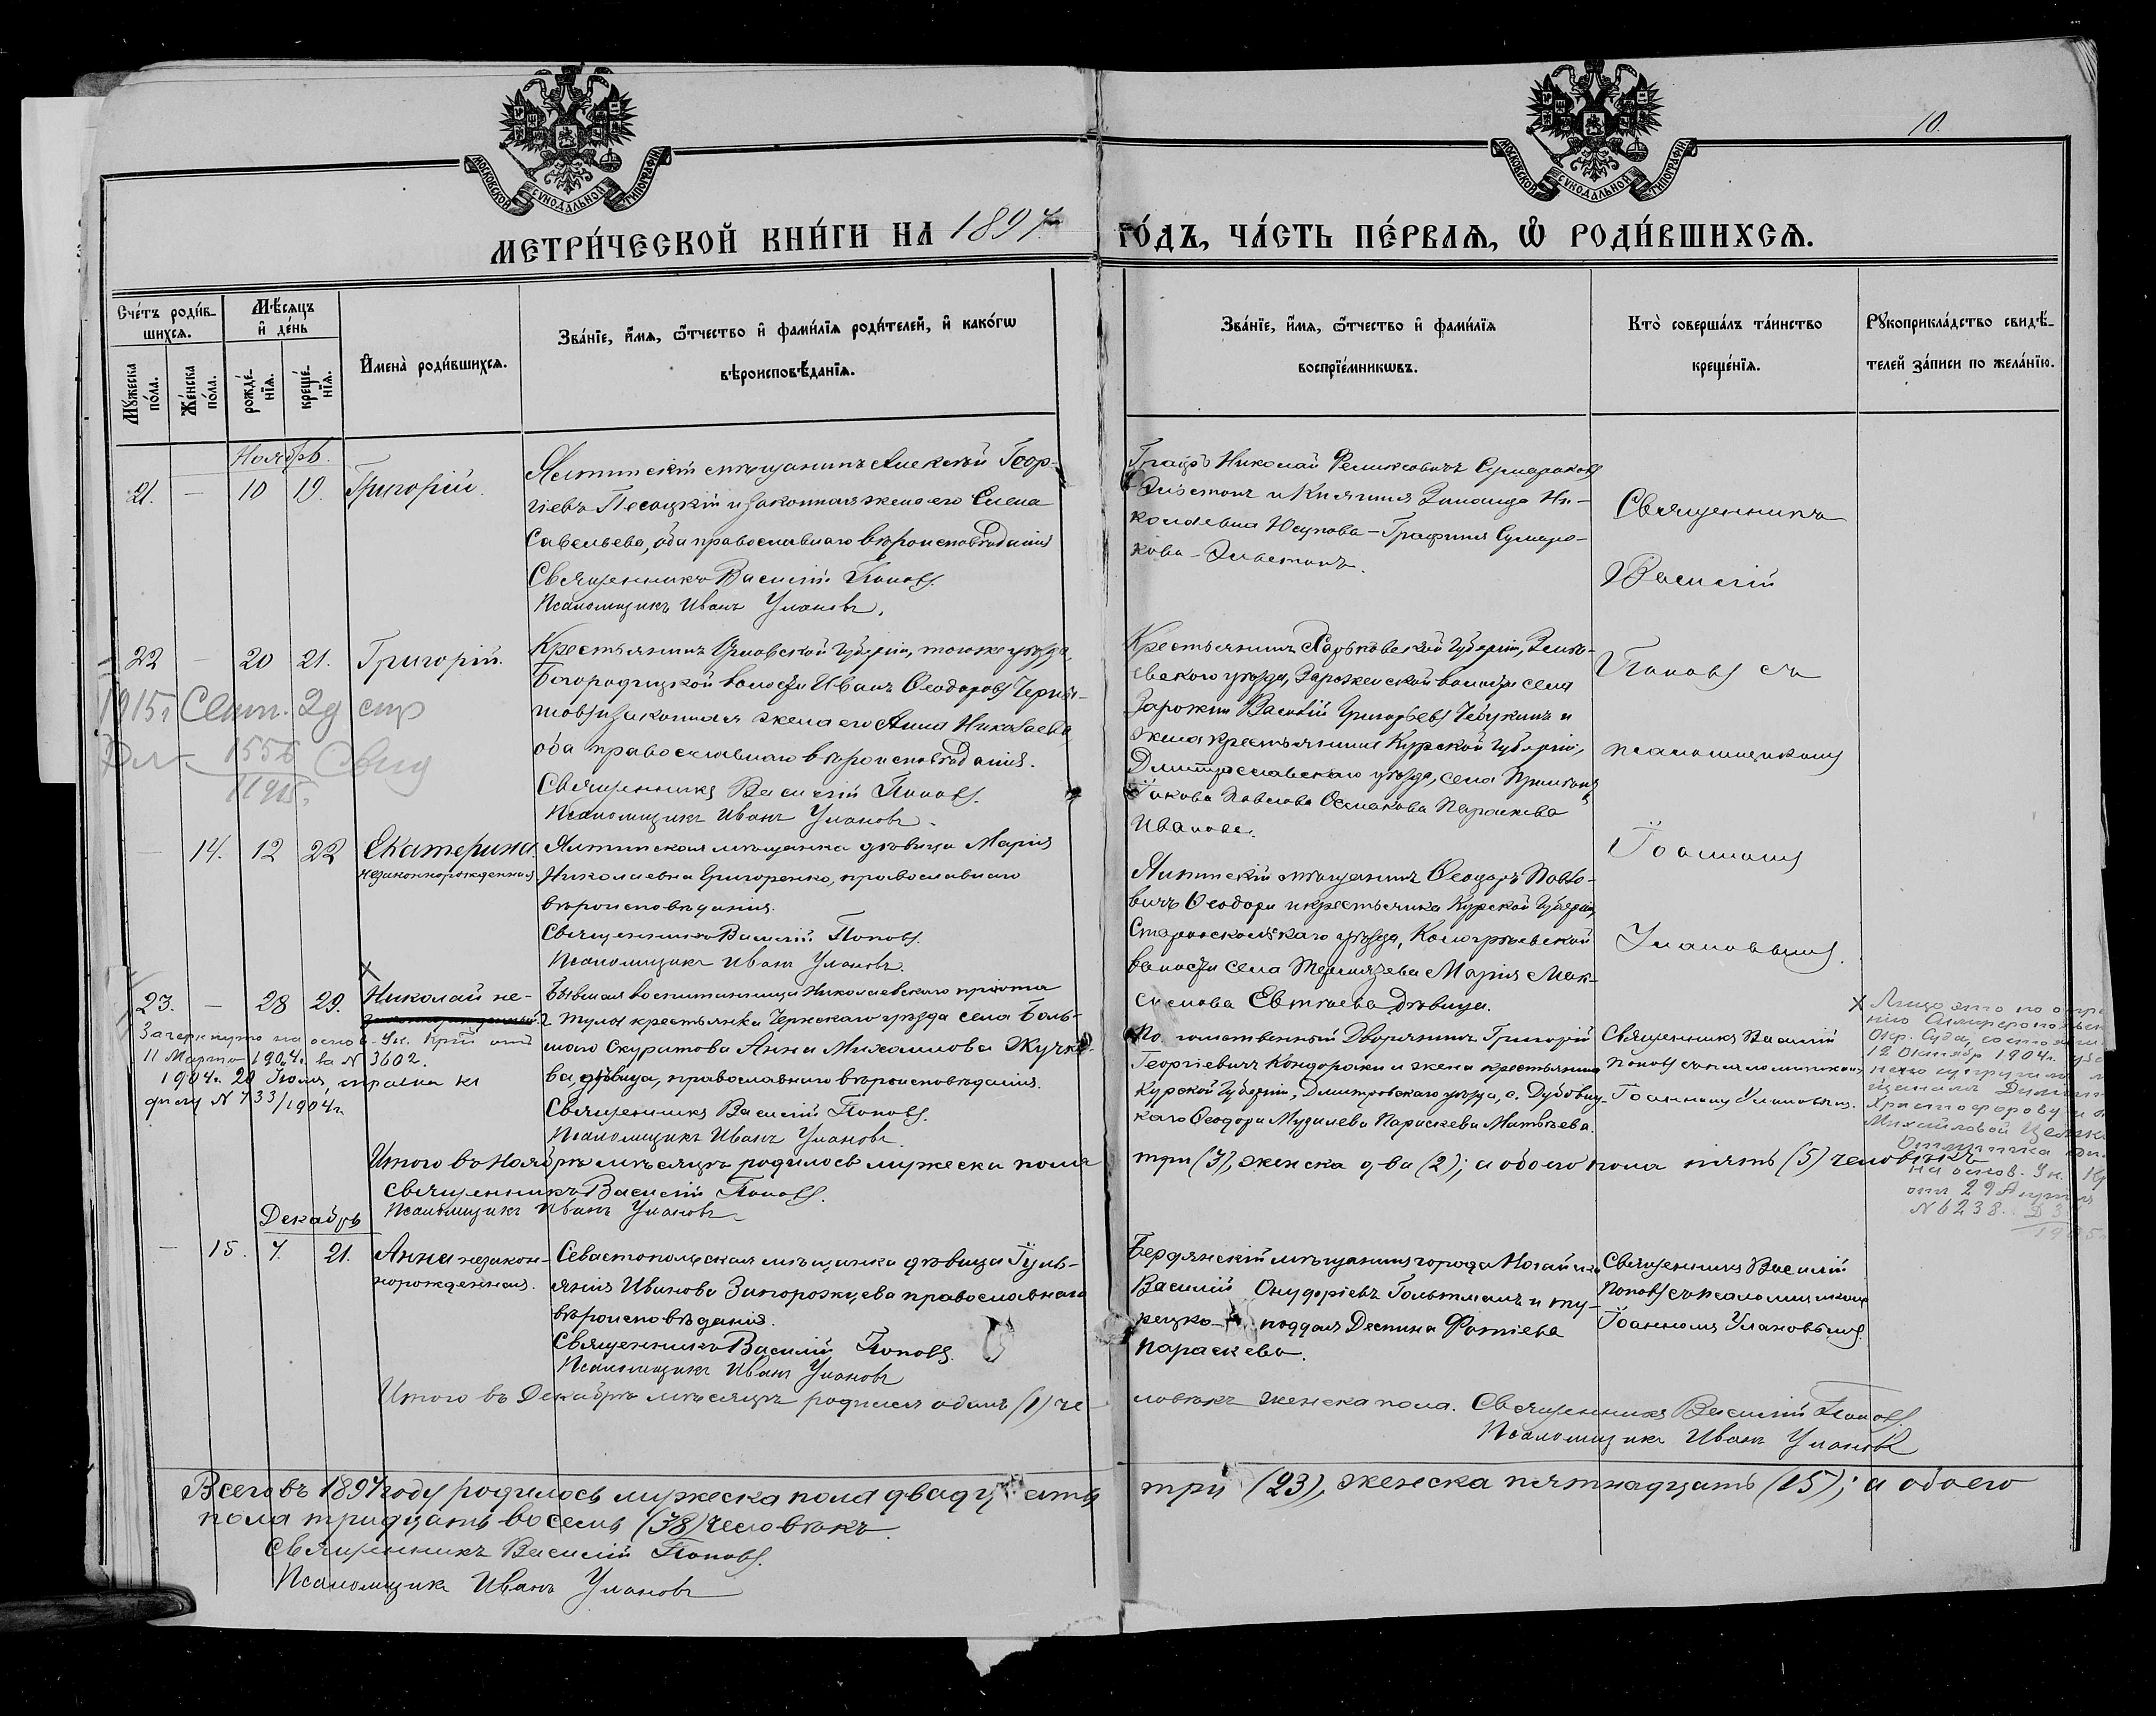 МОСКОВСКОЙ СѴНОДАЛЬНОЙ ТИПОГРАФІИ
МОСКОВСКОЙ СѴНОДАЛЬНОЙ ТИПОГРАФІИ
10.
МЕТРИ́ЧЕСКОЙ КНИ́ГИ НА 1897
ГО́ДЪ, ЧА́СТЬ ПЕ́РВАѦ, Ѡ҆ РОДИ́ВШИХСѦ.
Сче́тъ роди́в-
шихсѧ.
Мꙋ́жеска по́ла.
Же́нска по́ла.
Мѣ́сѧцъ
и҆ де́нь
рожде́-
нїѧ.
креще́-
нїѧ.
И҆мена̀ роди́вшихсѧ.
Зва́нїе, и҆́мѧ, ѻ҆́тчество и҆ фами́лїѧ роди́телей, и҆ како́гѡ
вѣроисповѣ́данїѧ.
Зва́нїе, и҆́мѧ, ѻ҆́тчество и҆ фами́лїѧ
воспрїе́мникѡвъ.
Кто̀ соверша́лъ та́инство
креще́нїѧ.
Рꙋкоприкла́дство свидѣ́-
телей за́писи по жела́нїю.
Ноябрь.
21. — 10 19. Григорій.
Ялтинскій мѣщанинъ Алексѣй Геор-
гіевъ Песоцкій и законная жена его Елена
Савельева, оба православнаго вѣроисповѣданія
Священникъ Василій Поповъ.
Псаломщикъ Иванъ Улановъ.
Графъ Николай Феликсовичъ Сумароковъ
Эльстонъ и Княгиня Зинаида Ни-
колаевна Юсупова-Графиня Сумаро-
кова-Эльстонъ.
Священникъ
Василій
22 — 20 21. Григорій.
Крестьянинъ Орловской Губерніи, того же уѣзда,
Богородицкой волости Иванъ Ѳеодоровъ
и законная жена его Анна Николаева,
оба православнаго вѣроисповѣданія.
Священникъ Василій Поповъ.
Псаломщикъ Иванъ Улановъ.
Крестьянинъ Харьковской Губерніи, Зміе-
вского уѣзда, Зароженской волости села
Зарожни Василій Григорьевъ Чебукинъ и
жена крестьянина Курской Губерніи,
Дмитріевскаго уѣзда, села
Іакова Павлова Осмакова Параскева
Иванова.
Поповъ съ
псаломщикомъ
1915 г Сент. 29 спр
1556
1915 г.
— 14. 12 22 Екатерина
незаконнорожденная
Ялтинская мѣщанка дѣвица Марія
Николаевна Григоренко, православнаго
вѣроисповѣданія.
Священникъ Василій Поповъ.
Псаломщикъ Иванъ Улановъ.
Ялтинскій мѣщанинъ Ѳеодоръ Павло-
вичъ Ѳеодори и крестьянка Курской Губерніи,
Старооскольскаго уѣзда,
волости села Марія Мак-
симова Евтѣева дѣвица.
Іоанномъ
Улановымъ.
23. — 28 29. Николай не-
законнорожденный
Зачеркнуто на основ. Ук. отъ
11 Марта 1904 г. за N 3602.
1904 г. 20 Іюля, справка къ
дѣлу N 733/1904 г.
Бывшая воспитанница Николаевскаго пріюта
г. Тулы крестьянка Чернскаго уѣзда села Боль-
шого Скуратова Анна Михаилова Жучко-
ва, дѣвица, православнаго вѣроисповѣданія.
Священникъ Василій Поповъ.
Псаломщикъ Иванъ Улановъ.
Потомственный Дворянинъ Григорій
Георгіевичъ Кондораки и жена крестьянина
Курской Губерніи, Дмитровскаго уѣзда, с. Дубовиц-
каго Ѳеодора Мудилева Параскева Матвѣева.
Священникъ Василій
Поповъ съ псаломщикомъ
Іоанномъ Улановымъ.
Лицо это по опре
нію Симферопольск
Окр. Суда,
12 Октября 1904 г.
нено супругами
щанамъ
Христофорову и
Михайловой
на основ. Ук.
отъ 29
N 6238.
Итого въ Ноябрѣ мѣсяцѣ родилось мужеска пола
три (3), женска два (2); а обоего пола пять (5) человѣкъ
Священникъ Василій Поповъ.
Псаломщикъ Иванъ Улановъ
Декабрь
— 15. 7. 21. Анна незакон-
норожденная.
Севастопольская мѣщанка дѣвица Іуль-
янія Иванова Запорожцева православнаго
вѣроисповѣданія.
Священникъ Василій Поповъ.
Псаломщикъ Иванъ Улановъ
Бердянскій мѣщанинъ города Ногайска
Василій Онуфріевъ Гольтманъ и ту-
рецко- поддан Деспина Фотіева
Параскева.
Священникъ Василій
Поповъ съ псаломщикомъ
Іоанномъ Улановымъ.
Итого въ Декабрѣ мѣсяцѣ родился одинъ (1) че-
ловѣкъ женска пола. Священникъ Василій Поповъ.
Псаломщикъ Иванъ Улановъ
Всего въ 1897 году родилось мужеска пола двадцать
три (23), женска пятнадцать (15); а обоего
пола тридцать восемь (38) человѣкъ.
Священникъ Василій Поповъ.
Псаломщикъ Иванъ Улановъ